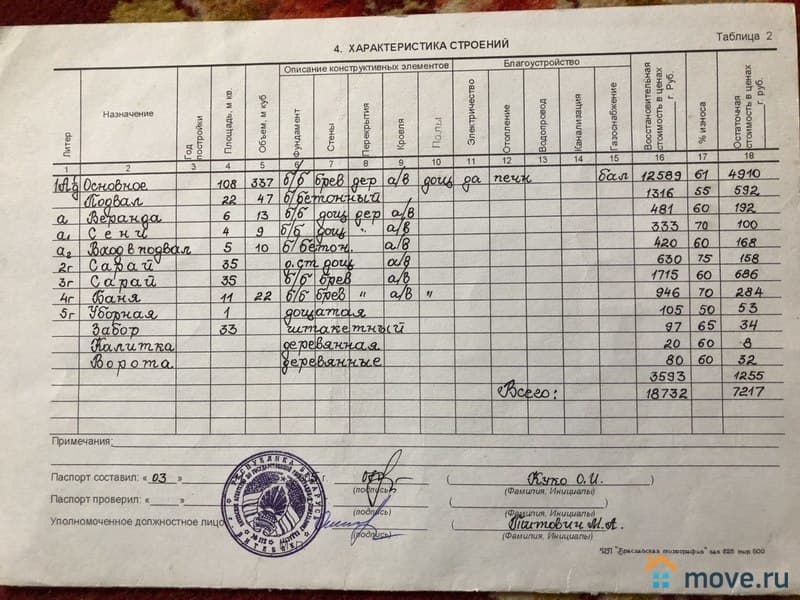 Таблица 2
4. ХАРАКТЕРИСТИКА СТРОЕНИЙ
Литер Назначение Год постройки Площадь, м кв. Объем, м куб Описание конструктивных элементов Благоустройство Восстановительная стоимость в ценах г. Руб. % износа Остаточная стоимость в ценах г. руб.
Фундамент Стены Перекрытия Кровля Полы Электричество Отопление Водопровод Канализация Газоснабжение
1 2 3 4 5 6 7 8 9 10 11 12 13 14 15 16 17 18
Основное 108 337 б/б брев дер а/в дощ да печн бал 12589 61 4910
Подвал 22 47 б/бетонный 1316 55 592
а Веранда 6 13 б/б дощ дер а/в 481 60 192
а₁ Сени 4 9 б/б дощ " а/в 333 70 100
а₂ Вход в подвал 5 10 б/бетон. а/в 420 60 168
2г Сарай 35 о.ст дощ а/в 630 75 158
3г Сарай 35 б/б брев а/в 1715 60 686
4г Баня 11 22 б/б брев " а/в " 946 70 284
5г Уборная 1 дощатая 105 50 53
Забор 33 штакетный 97 65 34
Калитка деревянная 20 60 8
Ворота деревянные 80 60 32
3593 1255
Всего: 18732 7217
Примечания:
Паспорт составил: « 03 » г. (подпись) ( Куко О.И. )
(Фамилия, Инициалы)
Паспорт проверил: « » (подпись) ( )
(Фамилия, Инициалы)
Уполномоченное должностное лицо (подпись) ( Титович М.А. )
(Фамилия, Инициалы)
РЕСПУБЛИКА БЕЛАРУСЬ
move.ru